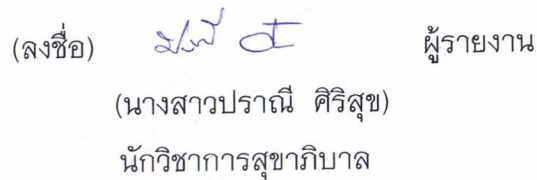 (ลงชื่อ) ผู้รายงาน
(นางสาวปราณี ศิริสุข)
นักวิชาการสุขาภิบาล